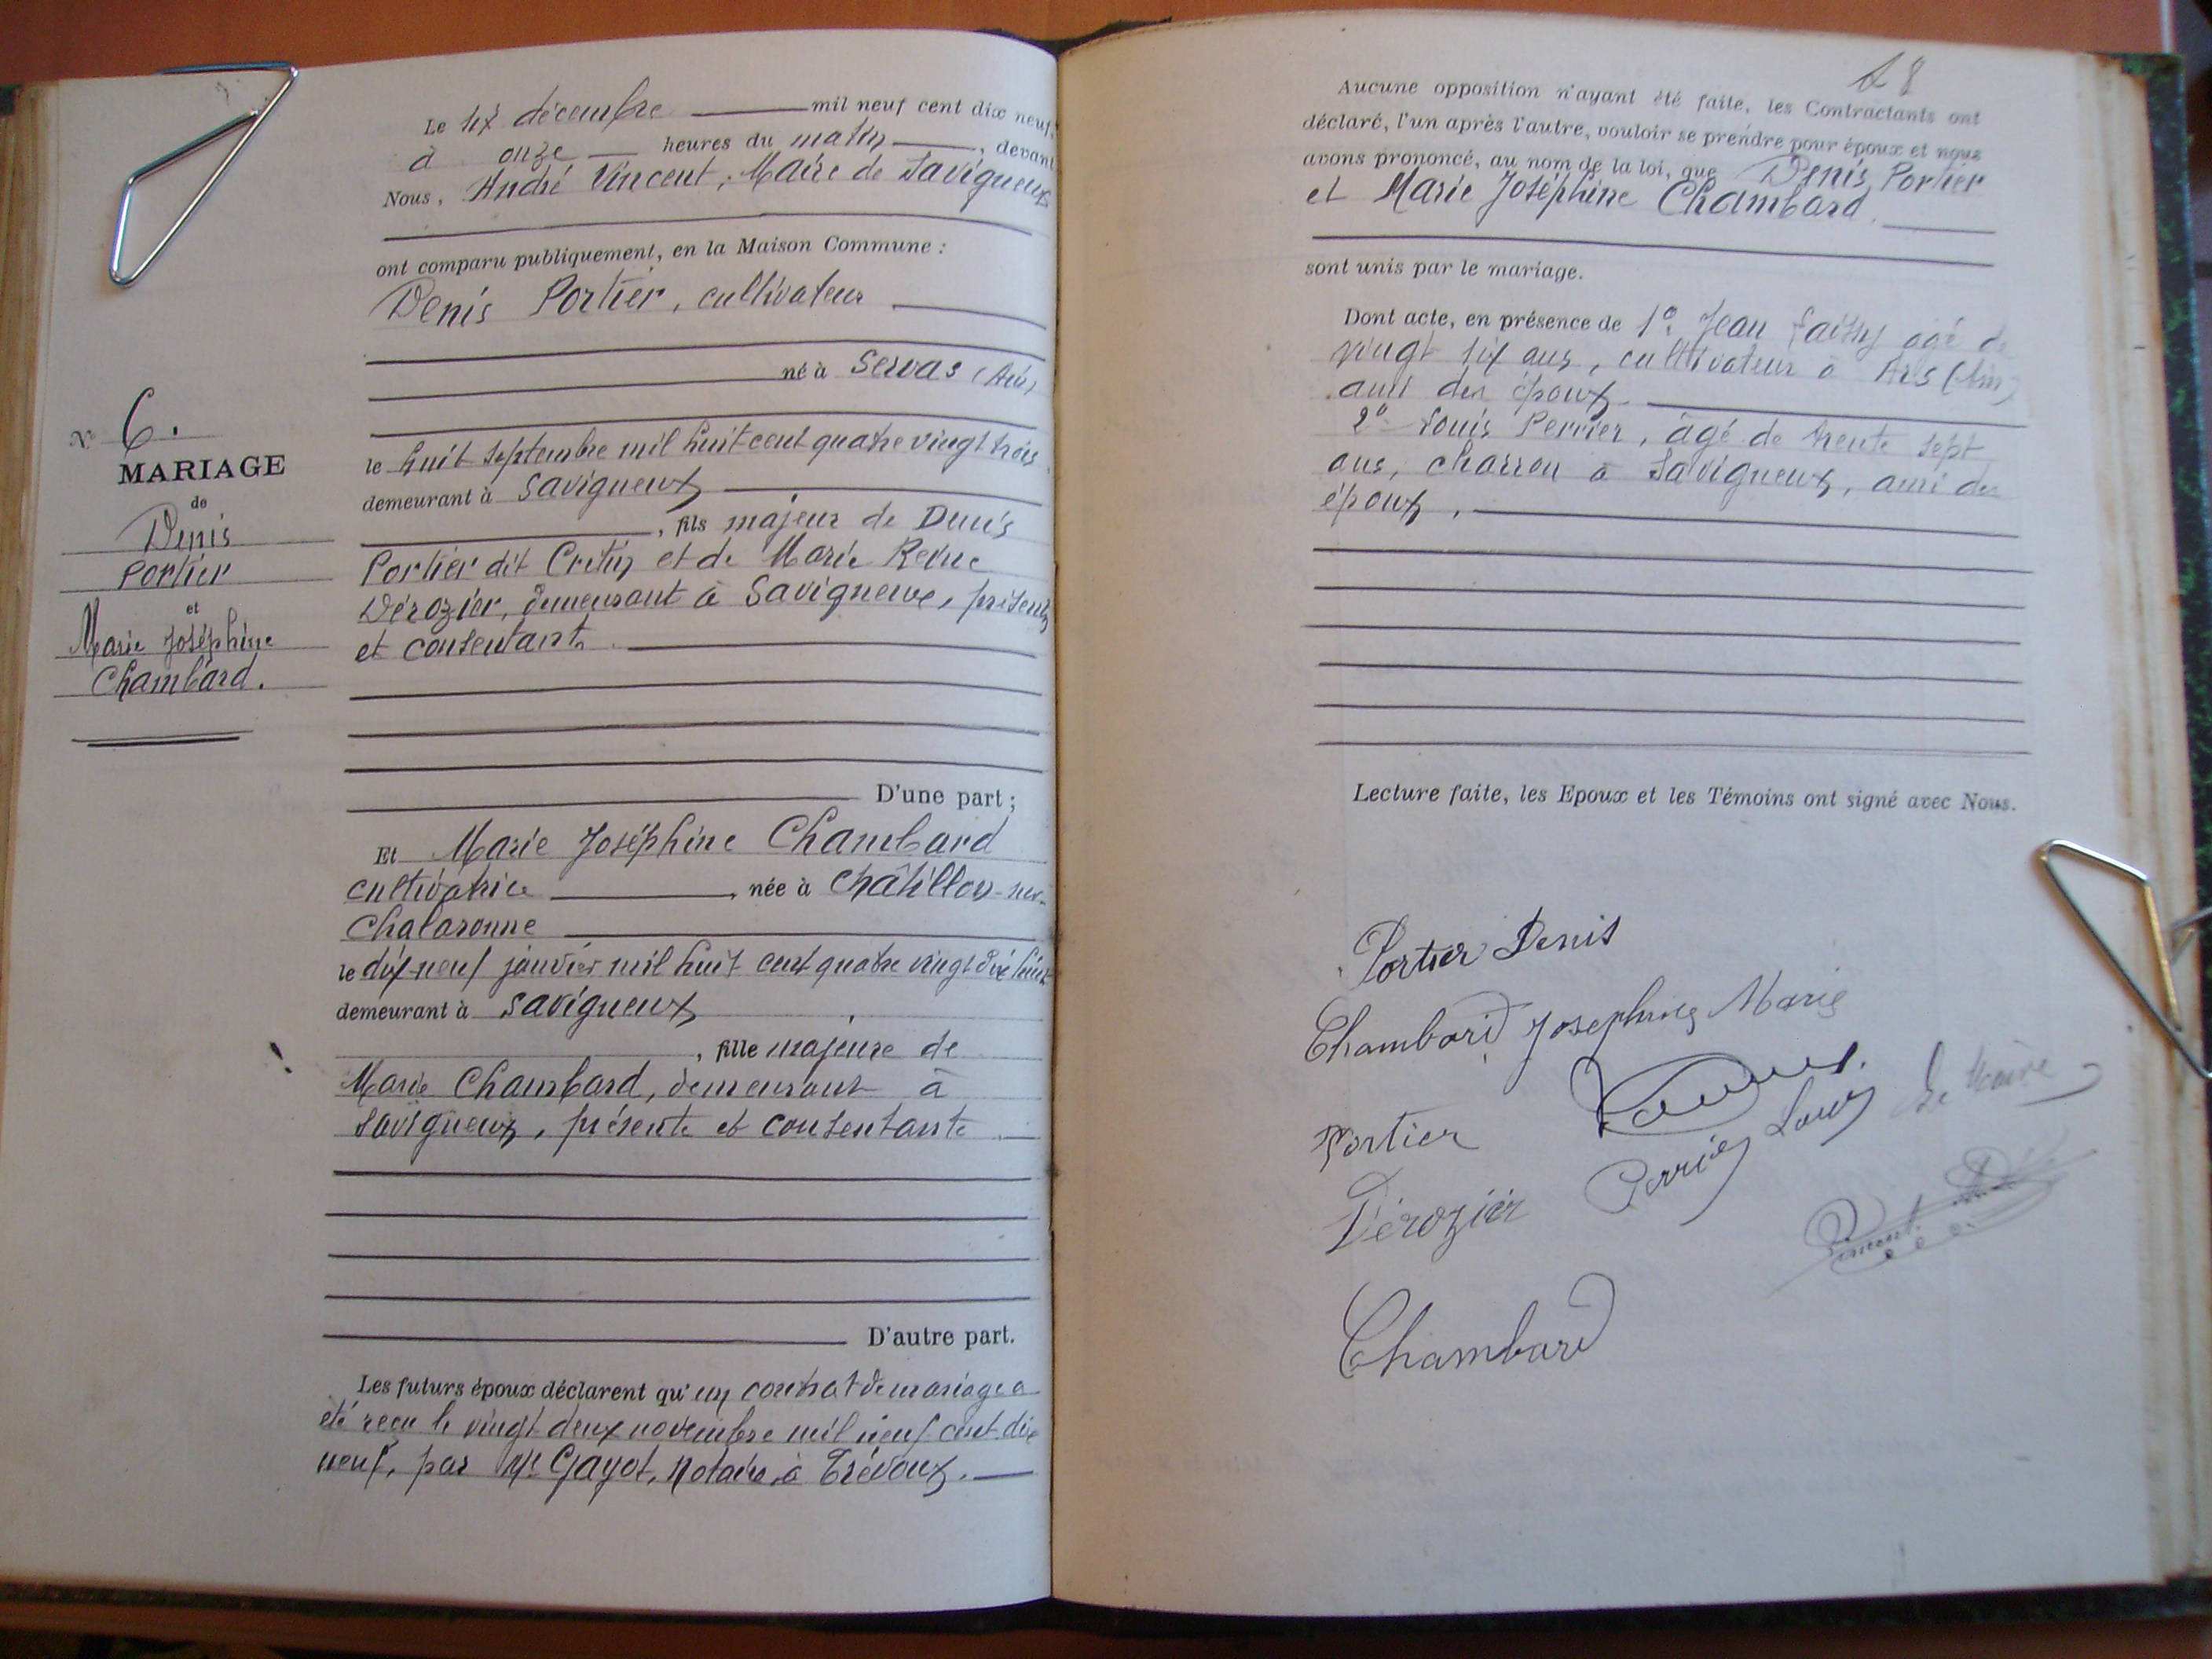 Le six décembre mil neuf cent dix neuf,
à onze heures du matin, devant
Nous, André Vincent, Maire de Savigneux
ont comparu publiquement, en la Maison Commune :
Denis Portier, cultivateur
né à Servas (Ain)
le huit septembre mil huit cent quatre vingt trois
demeurant à Savigneux
, fils majeur de Denis
Portier dit Cretin et de Marie Reine
Dérozier, demeurant à Savigneux, présents
et consentants
D'une part ;
N° 6.
MARIAGE
de
Denis
Portier
et
Marie Joséphine
Chambard.
Et Marie Joséphine Chambard
cultivatrice, née à Châtillon-sur-
Chalaronne
le dix-neuf janvier mil huit cent quatre vingt dix huit
demeurant à Savigneux
, fille majeure de
Marie Chambard, demeurant à
Savigneux, présente et consentante
D'autre part.
Les futurs époux déclarent qu'un contrat de mariage a
été reçu le vingt deux novembre mil neuf cent dix
neuf, par Me Gayot, notaire à Trévoux.
18
Aucune opposition n'ayant été faite, les Contractants ont
déclaré, l'un après l'autre, vouloir se prendre pour époux et nous
avons prononcé, au nom de la loi, que Denis Portier
et Marie Joséphine Chambard
sont unis par le mariage.
Dont acte, en présence de 1° Jean agé de
vingt six ans, cultivateur à Ars (Ain)
ami des époux
2° Louis Perrier, âgé de trente sept
ans, charron à Savigneux, ami des
époux,
Lecture faite, les Epoux et les Témoins ont signé avec Nous.
Portier Denis
Chambard Josephine Marie
Portier
Perrier Louis
Le Maire
Dérozier
Vincent
Chambard